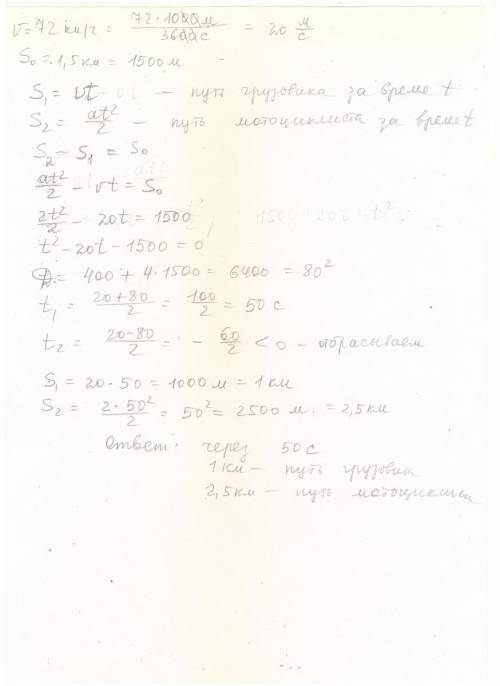 v = 72 км/ч = 72·1000м / 3600с = 20 м/с
S₀ = 1,5 км = 1500 м
S₁ = vt — путь грузовика за време t
S₂ = at²/2 — путь мотоциклиста за време t
S₂ - S₁ = S₀
at²/2 - vt = S₀
2t²/2 - 20t = 1500
t² - 20t - 1500 = 0
D = 400 + 4·1500 = 6400 = 80²
t₁ = (20+80)/2 = 100/2 = 50 с
t₂ = (20-80)/2 = - 60/2 < 0 — отбрасываем
S₁ = 20·50 = 1000 м = 1 км
S₂ = 2·50²/2 = 50² = 2500 м. = 2,5 км
Ответ: через 50 с
1 км — путь грузовик
2,5 км — путь